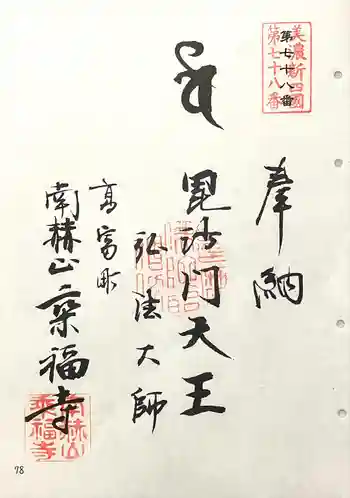 美濃新四國
第七十八番
第七十八番
奉納
毘沙門天王
弘法大師
高富町
南林山乗福寺
南林山
乗福寺
78